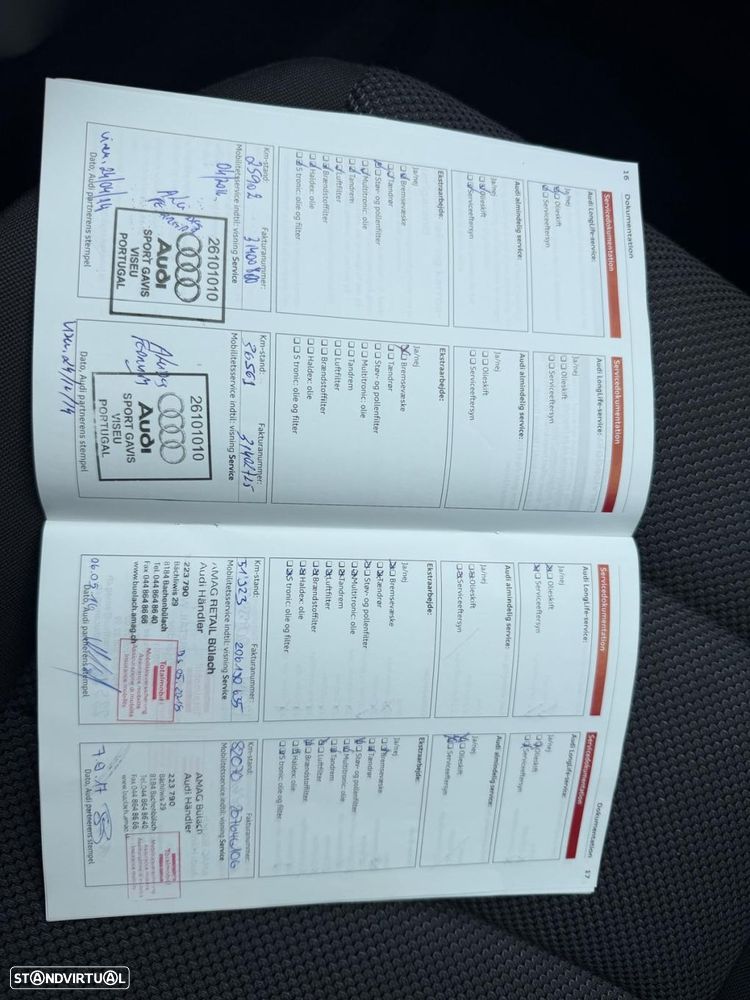 16 Dokumentation
Servicedokumentation
Audi LongLife-service:
Ja/nej
Olieskift
Serviceeftersyn
Audi almindelig service:
Ja/nej
Olieskift
Serviceeftersyn
Ekstraarbejde:
Ja/nej
Bremsevæske
Tændrør
Støv- og pollenfilter
Multitronic: olie
Tandrem
Luftfilter
Brændstoffilter
Haldex: olie
S tronic: olie og filter
Km-stand: Fakturanummer:
25902 31400800
Mobilitetsservice indtil: visning Service
26101010
Audi
SPORT GAVIS
VISEU
PORTUGAL
Dato, Audi partnerens stempel
Servicedokumentation
Audi LongLife-service:
Ja/nej
Olieskift
Serviceeftersyn
Audi almindelig service:
Ja/nej
Olieskift
Serviceeftersyn
Ekstraarbejde:
Ja/nej
Bremsevæske
Tændrør
Støv- og pollenfilter
Multitronic: olie
Tandrem
Luftfilter
Brændstoffilter
Haldex: olie
S tronic: olie og filter
Km-stand: Fakturanummer:
36561
Mobilitetsservice indtil: visning Service
26101010
Audi
SPORT GAVIS
VISEU
PORTUGAL
Dato, Audi partnerens stempel
Servicedokumentation
Audi LongLife-service:
Ja/nej
Olieskift
Serviceeftersyn
Audi almindelig service:
Ja/nej
Olieskift
Serviceeftersyn
Ekstraarbejde:
Ja/nej
Bremsevæske
Tændrør
Støv- og pollenfilter
Multitronic: olie
Tandrem
Luftfilter
Brændstoffilter
Haldex: olie
S tronic: olie og filter
Km-stand: Fakturanummer:
51'323 206190635
Mobilitetsservice indtil: visning Service
AMAG RETAIL Bülach
Audi Händler
223 790
Bächliwis 29
8184 Bachenbülach
Tel. 044 864 86 40
Fax 044 864 86 66
www.buelach.amag.ch
Totalmobil
Dato, Audi partnerens stempel
Dokumentation 17
Servicedokumentation
Audi LongLife-service:
Ja/nej
Olieskift
Serviceeftersyn
Audi almindelig service:
Ja/nej
Olieskift
Serviceeftersyn
Ekstraarbejde:
Ja/nej
Bremsevæske
Tændrør
Støv- og pollenfilter
Multitronic: olie
Tandrem
Luftfilter
Brændstoffilter
Haldex: olie
S tronic: olie og filter
Km-stand: Fakturanummer:
207646106
Mobilitetsservice indtil: visning Service
AMAG Bülach
Audi Händler
223 790
Bächliwis 29
8184 Bachenbülach
Tel. 044 864 86 40
Fax 044 864 86 66
Totalmobil
Dato, Audi partnerens stempel
STANDVIRTUAL